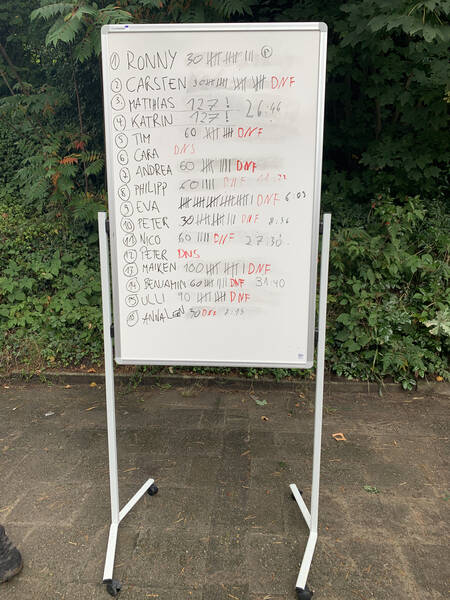 1 RONNY 30 |||| |||| |||| ||| R
2 CARSTEN 30 |||| |||| |||| |||| DNF
3 MATTHIAS 127! 26:46
4 KATRIN 127!
5 TIM 60 |||| |||| DNF
6 CARA DNS
7 ANDREA 60 |||| |||| DNF
8 PHILIPP 60 |||| DNF
9 EVA DNF 6:03
10 PETER 30 DNF 8:36
11 NICO 60 |||| DNF 27:30
12 PETER DNS
13 MAIKEN 100 |||| |||| | DNF
14 BENJAMIN 60 |||| |||| DNF 31:40
15 ULLI 90 |||| |||| DNF
16 ANNALENA 30 DNF